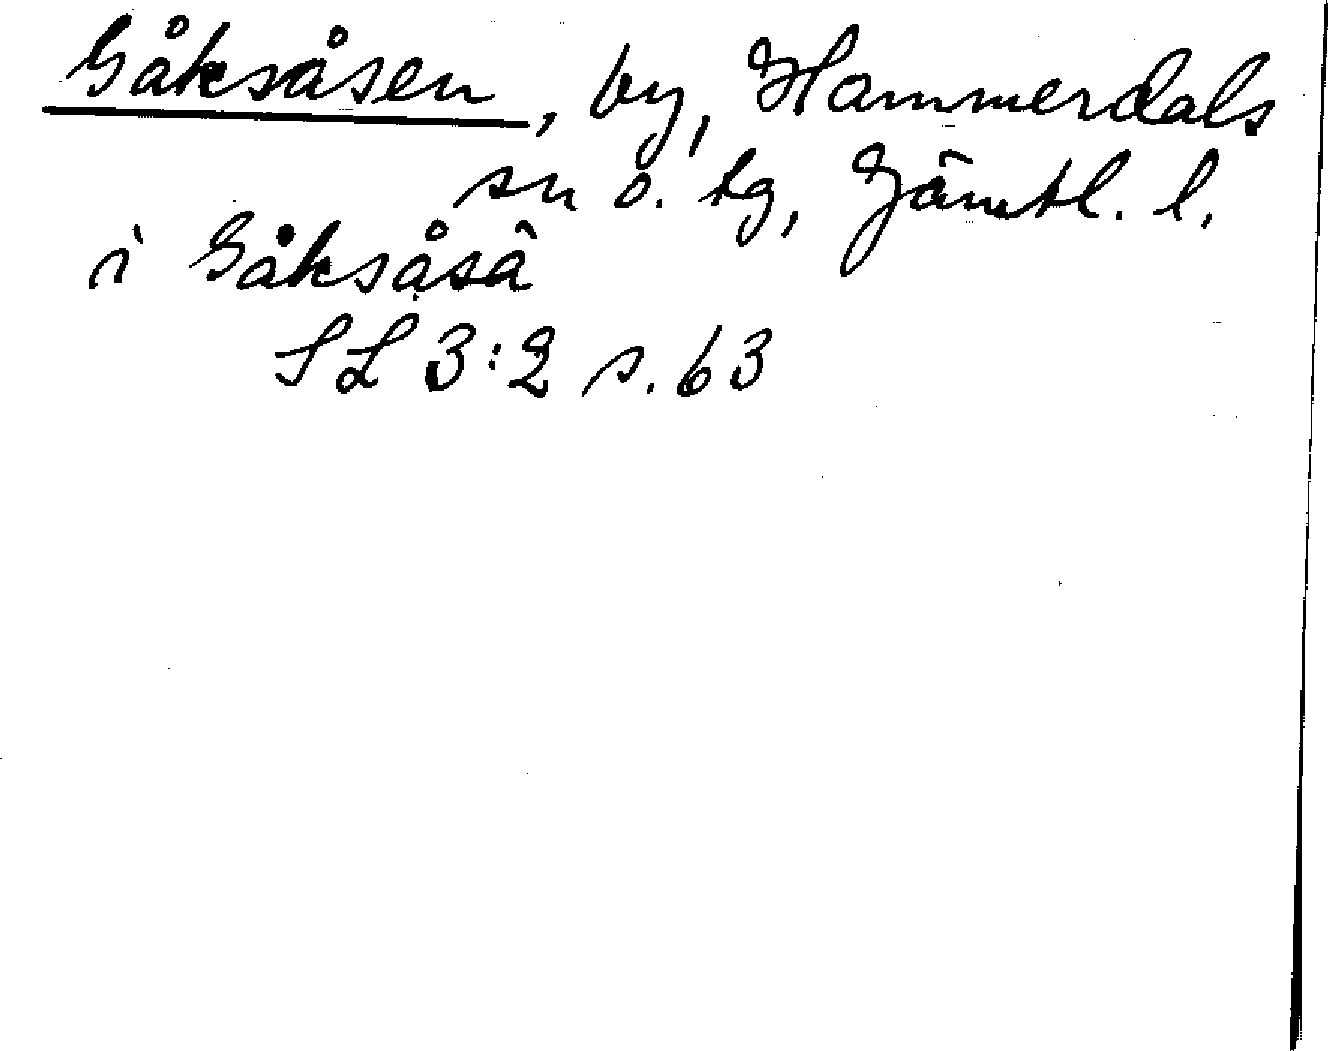 Gåksåsen, by, Hammerdals
sn o. tg, Jämtl. l.
i Gåksåsâ
SL 3:2 s. 63